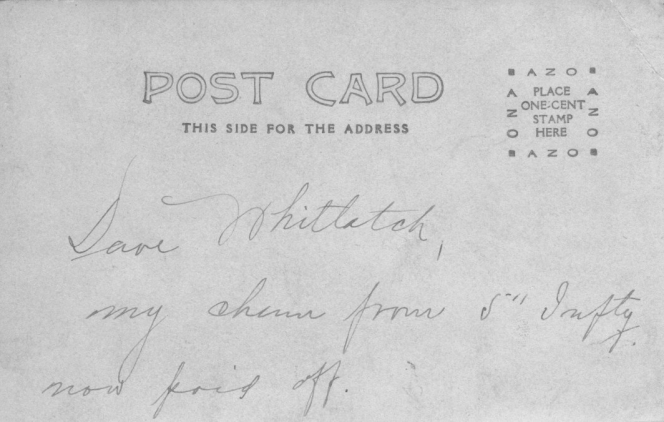 POST CARD
THIS SIDE FOR THE ADDRESS
AZO
AZO
PLACE
ONE-CENT
STAMP
HERE
AZO
AZO
Dave Whitlatch,
my chum from 5" Infty.
now paid off.